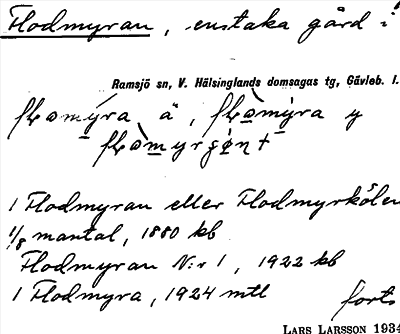 Flodmyran, enstaka gård i
Ramsjö sn, V. Hälsinglands domsagas tg, Gävleb. l.
1 Flodmyran eller Flodmyrkölen
1/8 mantal, 1880 kb
Flodmyran N:r 1, 1922 kb
1 Flodmyra, 1924 mtl
forts
LARS LARSSON 1934